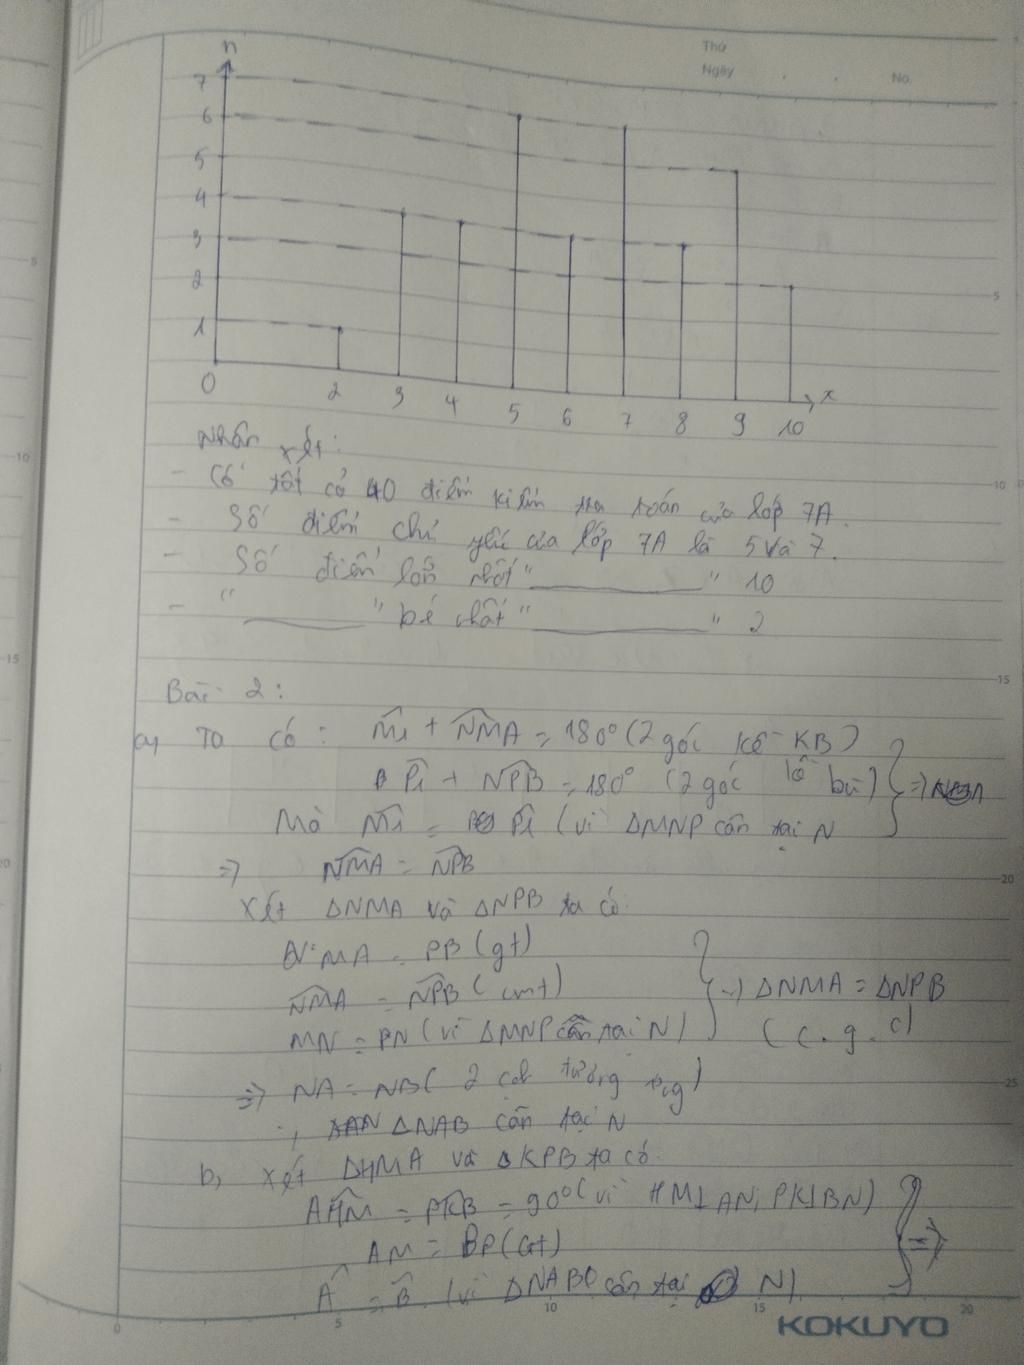 Thứ
Ngày . . No.
n
7
6
5
4
3
2
1
0 2 3 4 5 6 7 8 9 10 x
Nhận xét:
- Có tất cả 40 điểm kiểm tra toán của lớp 7A.
- Số điểm chủ yếu của lớp 7A là 5 và 7.
- Số điểm lớn nhất " ——— " 10
- " ——— " bé nhất " ——— " 2
Bài 2:
a, Ta có: M̂₁ + N̂MA = 180° (2 góc kề KB)
P̂₁ + N̂PB = 180° (2 góc kề bù) } =>
Mà M̂₁ = P̂₁ (vì ΔMNP cân tại N
=> N̂MA = N̂PB
Xét ΔNMA và ΔNPB ta có:
MA = PB (gt)
N̂MA = N̂PB (cmt) } => ΔNMA = ΔNPB
MN = PN (vì ΔMNP cân tại N) (c.g.c)
=> NA = NB (2 cạh tương ứg)
ΔNAB cân tại N
b, Xét ΔHMA và ΔKPB ta có
AĤM = PK̂B = 90° (vì HM⊥AN, PK⊥BN)
AM = BP (Gt) } =>
Â = B̂ (vì ΔNAB cân tại N)
5 10 15 20 25
0 5 10 15 20
KOKUYO